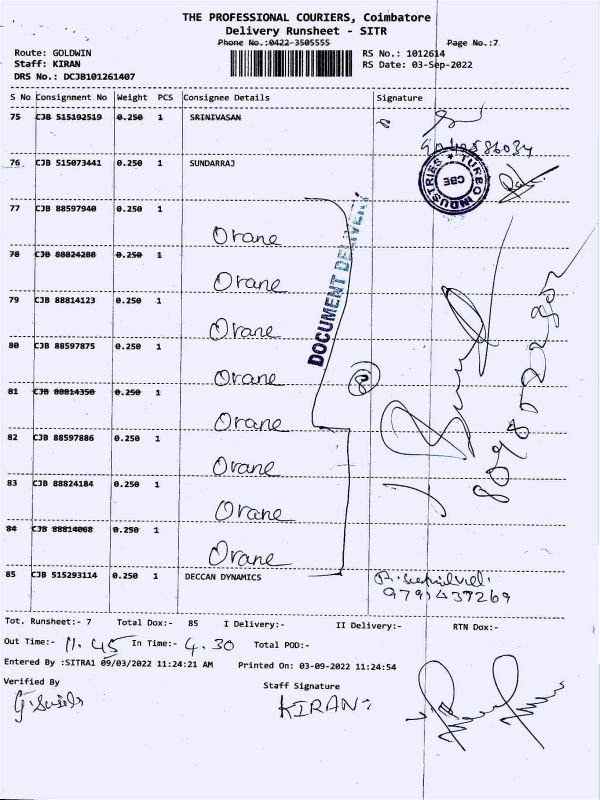 THE PROFESSIONAL COURIERS, Coimbatore
Delivery Runsheet - SITR
Phone No.:0422-3505555 Page No.:7
Route: GOLDWIN RS No.: 1012614
Staff: KIRAN RS Date: 03-Sep-2022
DRS No.: DCJB101261407
S No Consignment No Weight PCS Consignee Details Signature
75 CJB 515192519 0.250 1 SRINIVASAN
76 CJB 515073441 0.250 1 SUNDARRAJ
TURBO INDUSTRIES CBE
77 CJB 88597940 0.250 1
Orane
78 CJB 88824288 0.250 1
Orane
79 CJB 88814123 0.250 1
Orane
80 CJB 88597875 0.250 1
Orane
81 CJB 88814350 0.250 1
Orane
82 CJB 88597886 0.250 1
Orane
83 CJB 88824184 0.250 1
Orane
84 CJB 88814068 0.250 1
Orane
DOCUMENT DELIVERY
85 CJB 515293114 0.250 1 DECCAN DYNAMICS
9791437269
Tot. Runsheet:- 7 Total Dox:- 85 I Delivery:- II Delivery:- RTN Dox:-
Out Time:- 11.45 In Time:- 4.30 Total POD:-
Entered By :SITRA1 09/03/2022 11:24:21 AM Printed On: 03-09-2022 11:24:54
Verified By Staff Signature
KIRAN